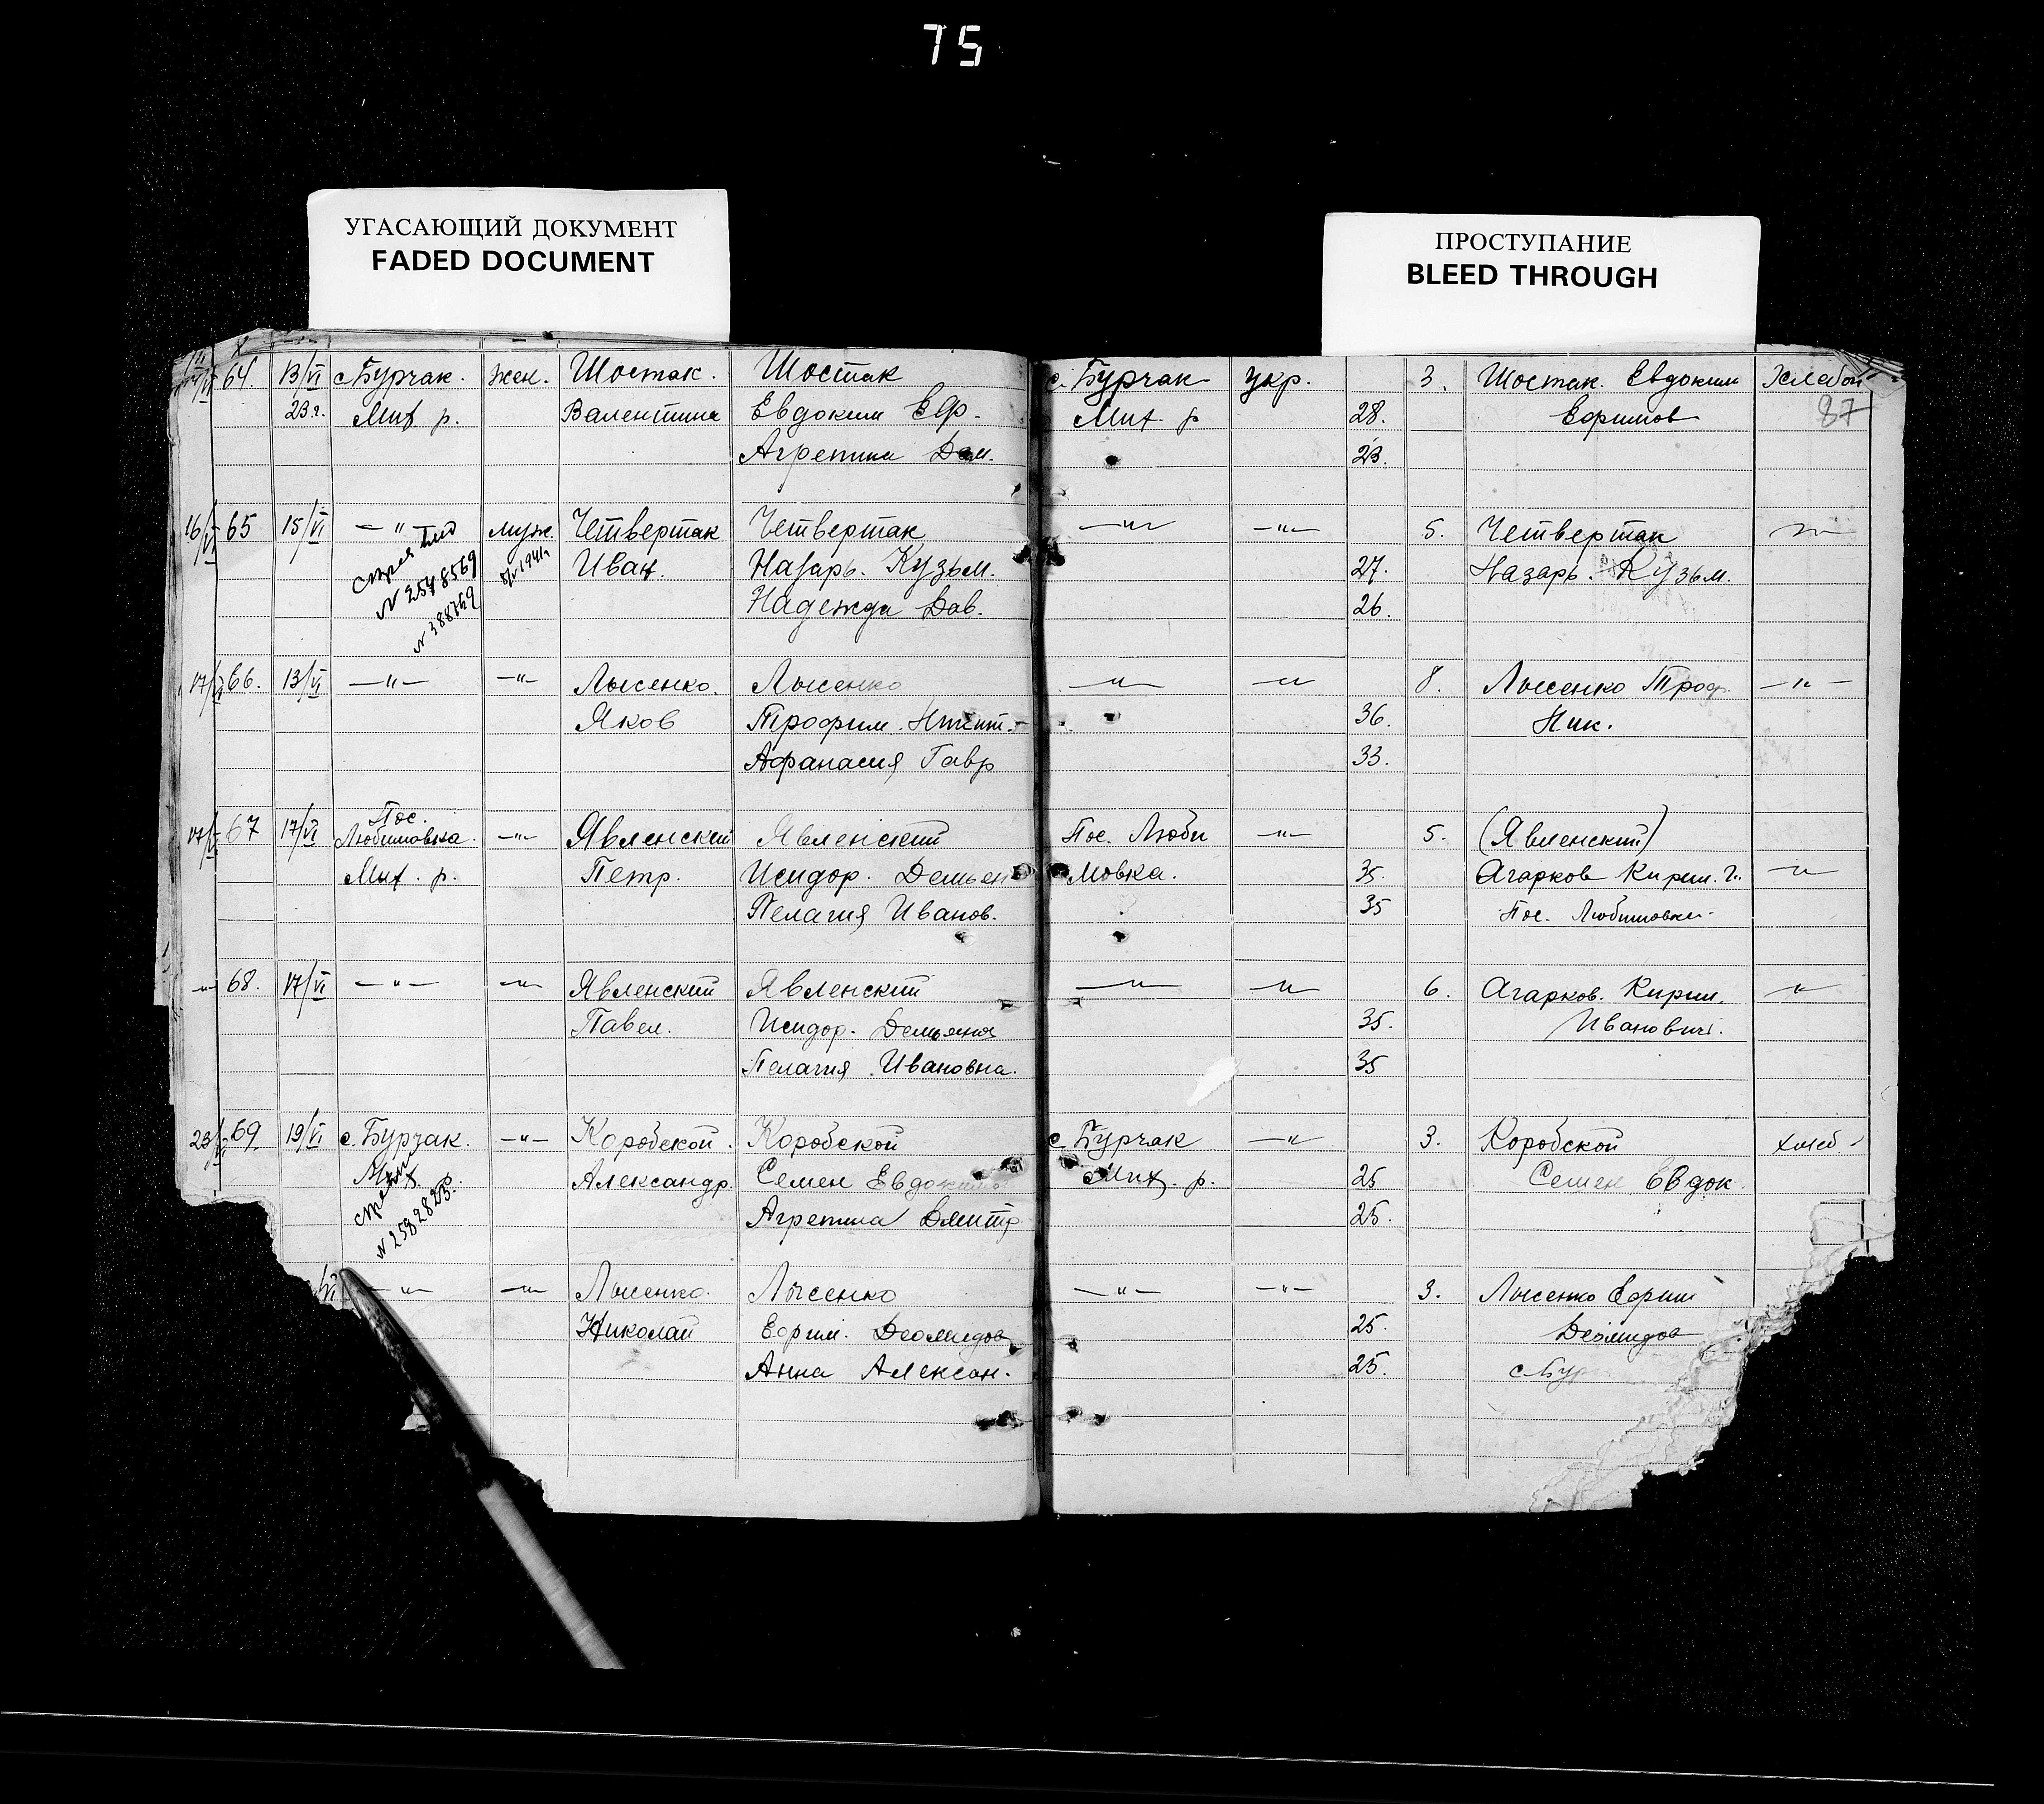 75
УГАСАЮЩИЙ ДОКУМЕНТ
FADED DOCUMENT
ПРОСТУПАНИЕ
BLEED THROUGH
64. 13/VI с Бурчак. жен. Шостак. Шостак с. Бурчак укр. 3. Шостак. Евдоким
23 г. Мих р. Валентина Евдоким Еф. Мих. р 28. Ефимов 87
Агрепина Дем. 23.
16/VI 65 15/VI —"— муж. Четвертак Четвертак —"— —"— 5. Четвертак —"—
Иван. Назарь. Кузьм. 27. Назарь. Кузьм.
№ 2548569
Надежда Дав. 26.
№ 388769
17/VI 66. 13/VI —"— —"— Лысенко. Лысенко —"— —"— 8. Лысенко Троф. —"—
Яков Трофим. 36. Ник.
Афанасия Гавр 33.
17/VI 67 17/VI Пос. Любимовка. —"— Явленский Явленский Пос. Люби —"— 5. (Явленский)
Мих. р. Петр. Исидор. Демьен мовка. 35. Агарков Кирил. —"—
Пелагия Иванов. 35 Пос. Любимовка.
—"— 68. 17/VI —"— —"— Явленский Явленский —"— —"— 6. Агарков. Кирил. —"—
Павел. Исидор. Демьяна 35. Иванович.
Пелагия Ивановна. 35
23/VI 69. 19/VI с. Бурчак. —"— Коробской. Коробской с. Бурчак —"— 3. Коробской хлеб.
Мих. Александр. Семен Евдокимо Мих. р. 25 Семен Евдок
№ 2582825.
Агрепина Дмитр 25.
/VI —"— —"— Лысенко. Лысенко —"— —"— 3. Лысенко Ефим
Николай Ефим. Деомидов 25. Деомидов
Анна Алексан. 25. с Бур